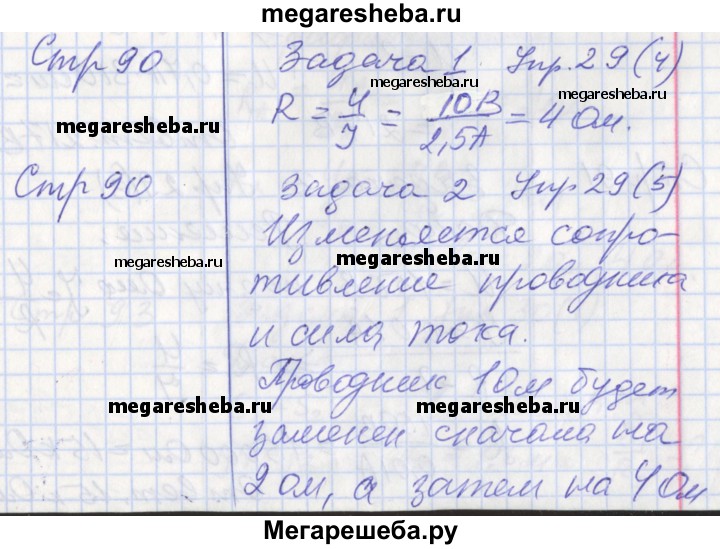 megaresheba.ru
Стр 90 Задача 1. Упр. 29 (4)
megaresheba.ru
R = U/I = 10В/2,5А = 4 Ом.
megaresheba.ru megaresheba.ru
Стр 90 Задача 2 Упр 29 (5)
megaresheba.ru
Изменяется сопро-
megaresheba.ru megaresheba.ru
тивление проводника
и сила тока.
Проводник 1 Ом будет
megaresheba.ru megaresheba.ru
заменен сначала на
megaresheba.ru megaresheba.ru
2 ом, а затем на 4 Ом
Мегарешеба.ру